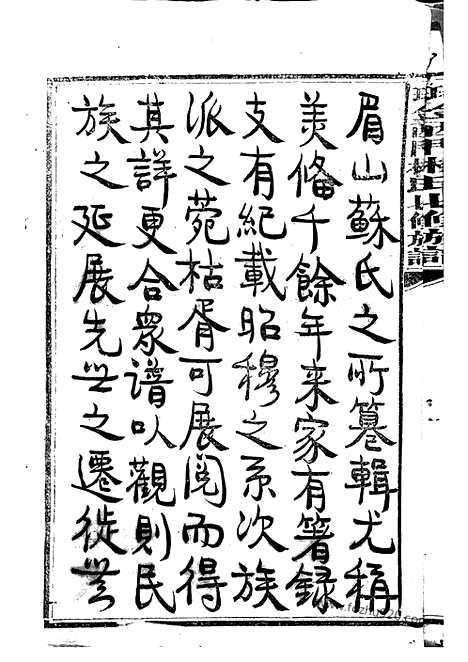 眉山蘇氏之所篹輯尤稱
美備千餘年来家有箸錄
支有紀載昭穆之系次族
派之菀枯胥可展閱而得
其詳更合衆譜以觀則民
族之延展先世之遷徙世